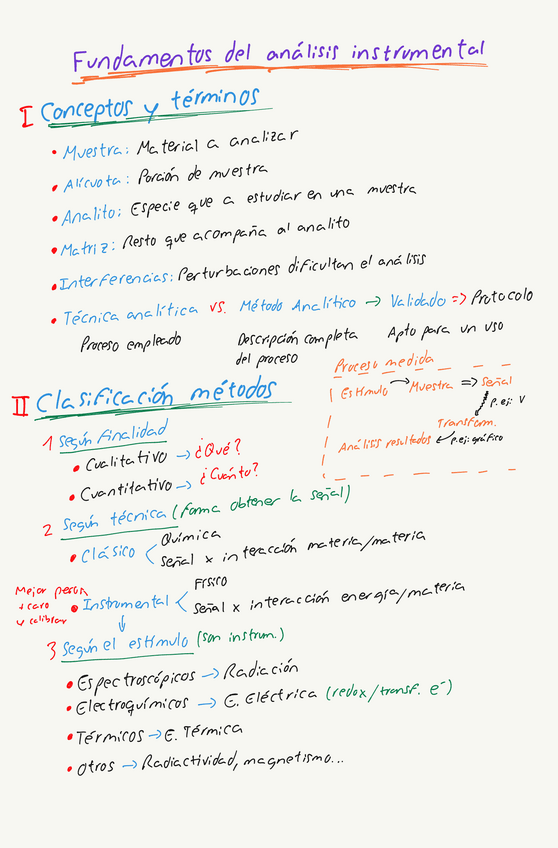 Fundamentos del análisis instrumental
I Conceptos y términos
• Muestra: Material a analizar
• Alícuota: Porción de muestra
• Analito: Especie que a estudiar en una muestra
• Matriz: Resto que acompaña al analito
• Interferencias: Perturbaciones dificultan el análisis
• Técnica analítica vs. Método Analítico → Validado => Protocolo
Proceso empleado Descripción completa Apto para un uso
del proceso
Proceso medida
Estímulo → Muestra => Señal
p.ej: V
Transform.
Análisis resultados ← p.ej: gráfico
II Clasificación métodos
1 Según finalidad
• Cualitativo → ¿Qué?
• Cuantitativo → ¿Cuánto?
2 Según técnica (forma obtener la señal)
• Clásico < Química
Señal x interacción materia/materia
Mejor peron
+ caro
y calibrar
• Instrumental < Físico
Señal x interacción energía/materia
↓
3 Según el estímulo (son instrum.)
• Espectroscópicos → Radiación
• Electroquímicos → E. Eléctrica (redox/transf. e⁻)
• Térmicos → E. Térmica
• Otros → Radiactividad, magnetismo...